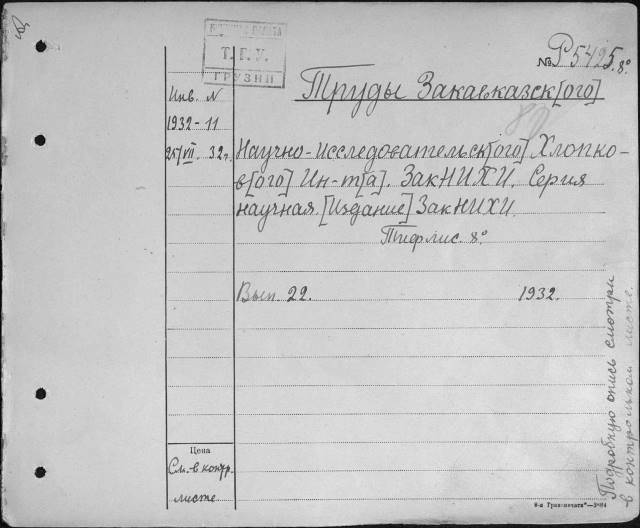 Т.Г.У.
ГРУЗИИ
№ Р5425.8º
Труды Закавказск[ого]
Инв. N
1932-11
25/VII. 32 г.
Научно-исследовательск[ого] Хлопко-
в[ого] Ин-т[а]. ЗакНИХИ. Серия
научная. [Издание] ЗакНИХИ.
Тифлис. 8º
Вып. 22. 1932.
Цена
См. в контр.
листе
Подробную опись смотри
в контрольном листе.